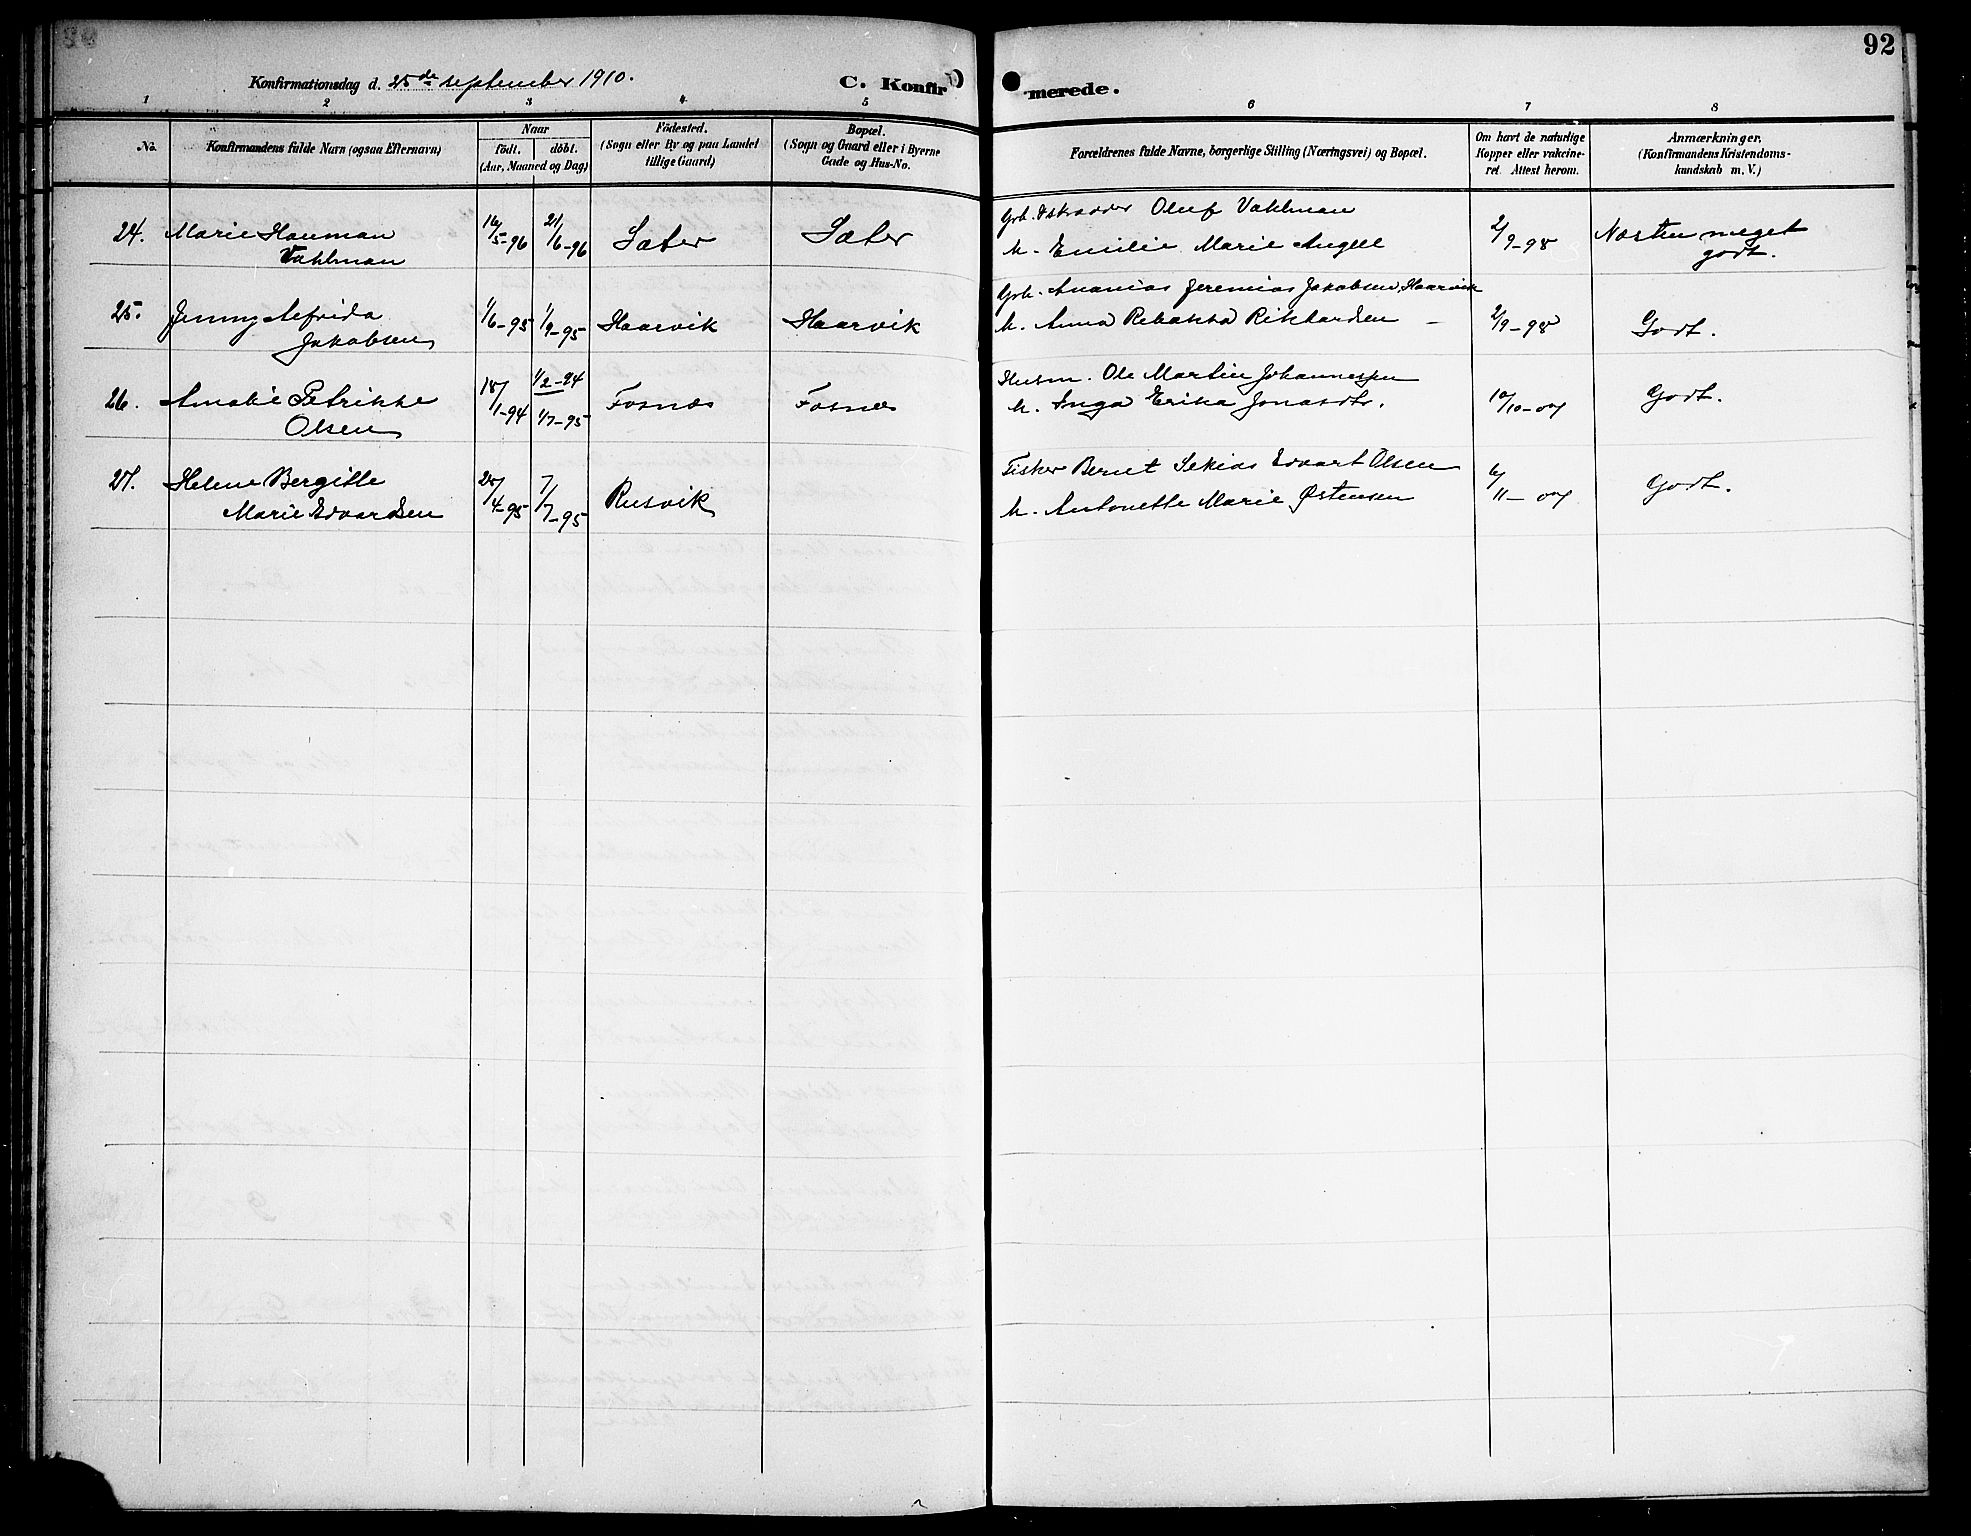 92
Konfirmationsdag d. 25de september 1910.
C. Konfirmerede.
1 2 3 4 5 6 7 8
No.
Konfirmandens fulde Navn (ogsaa Efternavn)
Naar
født. døbt.
(Aar, Maaned og Dag)
Fødested.
(Sogn eller By og paa Landet
tillige Gaard)
Bopæl.
(Sogn og Gaard eller i Byerne
Gade og Hus-No.
Forældrenes fulde Navne, borgerlige Stilling (Næringsvei) og Bopæl.
Om havt de naturlige
Kopper eller vakcine-
ret. Attest herom.
Anmærkninger,
(Konfirmandens Kristendoms-
kundskab m. V.)
24. Marie Hauman 16/5-96 21/6-96 Sæter Sæter Grb. & skrædder Oluf Vahlman 2/9-98 Næsten meget
Vahlman h. Emilie Marie Angell godt.
25. Jenny Alfrida 1/6-95 1/9-95 Haarvik Haarvik Grb. Ananias Jeremias Jakobsen, Haarvik 2/9-98 Godt.
Jakobsen h. Anna Rebekka Rikhardsen –
26. Amalie Petrikke 18/1-94 1/2-94 Fosnæs Fosnæs Husm. Ole Martin Johannessen 10/10-07 Godt.
Olsen 1/7-95 h. Inga Erika Jonasdtr.
27. Helene Bergitte 28/4-95 7/7-95 Rusvik Fisker Bernt Sekias Edvart Olsen 6/11-07 Godt.
Marie Edvardsen h. Antonette Marie Østensen